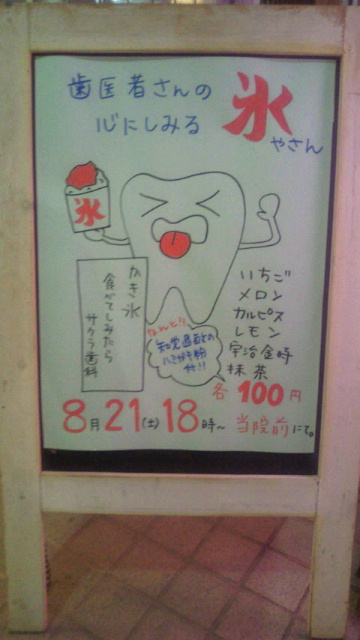 歯医者さんの
心にしみる
氷
やさん
氷
かき氷
食べてしみたら
サクラ歯科
なんと!!
知覚過敏の
ハミガキ粉
付!!
いちご
メロン
カルピス
レモン
宇治金時
抹茶
各100円
8月21(土)18時~ 当院前にて。